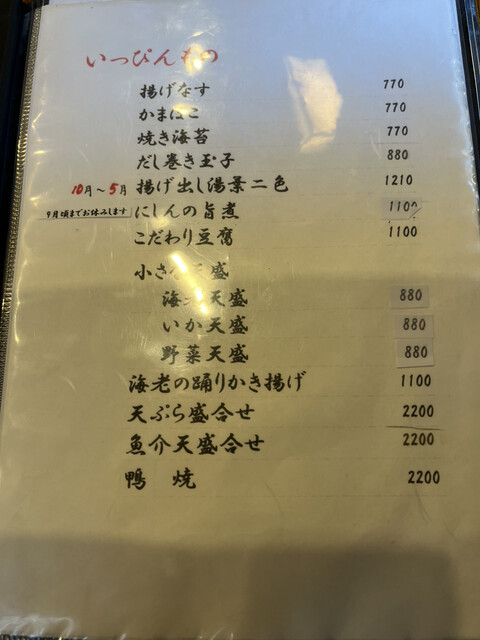 いっぴんもの
揚げなす 770
かまぼこ 770
焼き海苔 770
だし巻き玉子 880
10月～5月 揚げ出し湯葉二色 1210
9月頃までお休みします にしんの旨煮 1100
こだわり豆腐 1100
小さな天盛
海老天盛 880
いか天盛 880
野菜天盛 880
海老の踊りかき揚げ 1100
天ぷら盛合せ 2200
魚介天盛合せ 2200
鴨 焼 2200